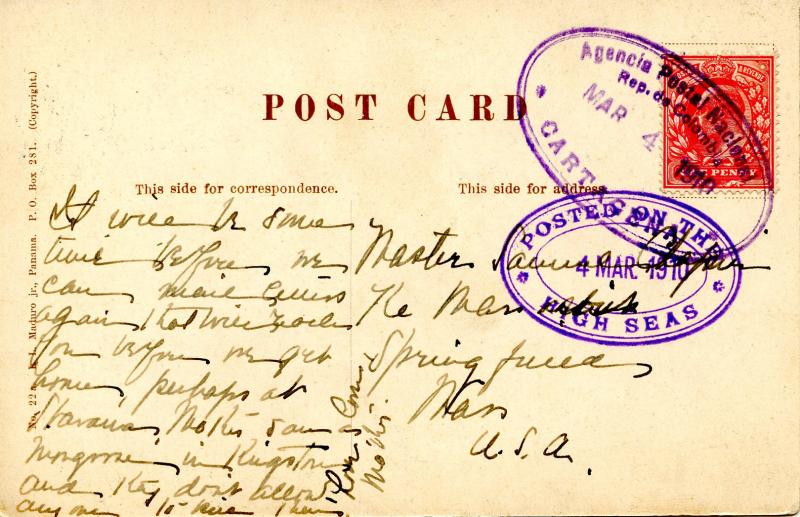 POST CARD
This side for correspondence.
This side for address.
It will be some
time before we
can mail letters
again that will reach
you before we get
home, perhaps at
Havana. Mother saw a
mongoose in Kingston
and they don't allow
any one to kill them.
Love from
Mother
Master
Springfield
Mass
U.S.A.
Agencia Postal Nacional
Rep. de Colombia
MAR 4 1910
CARTAGENA
POSTED ON THE
4 MAR. 1910
HIGH SEAS
ONE PENNY
No. 22a I. L. Maduro jr., Panama. P. O. Box 281. (Copyright.)